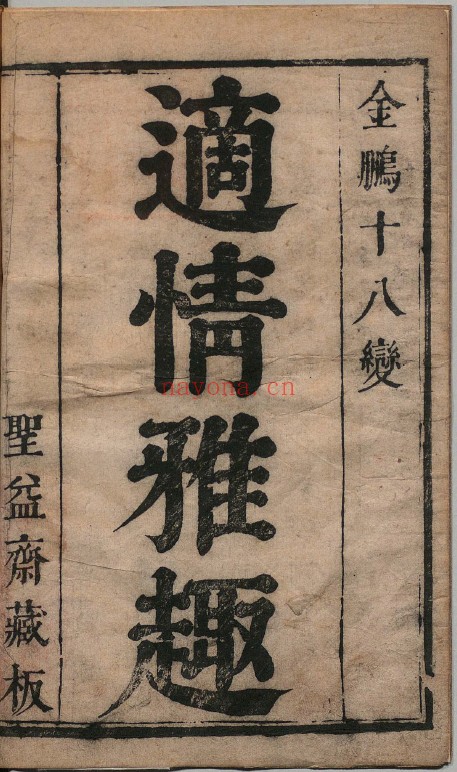 金鵬十八變
適情雅趣
聖益齋藏板
nayona.cn